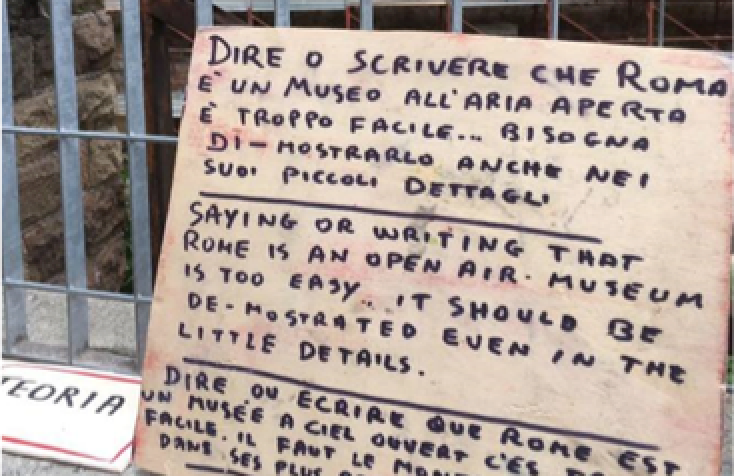 DIRE O SCRIVERE CHE ROMA
E' UN MUSEO ALL'ARIA APERTA
È TROPPO FACILE... BISOGNA
DI-MOSTRARLO ANCHE NEI
SUOI PICCOLI DETTAGLI
SAYING OR WRITING THAT
ROME IS AN OPEN AIR. MUSEUM
IS TOO EASY.. IT SHOULD BE
DE-MOSTRATED EVEN IN THE
LITTLE DETAILS.
DIRE OU ECRIRE QUE ROME EST
UN MUSÉE A CIEL OUVERT C'ES
FACILE. IL FAUT LE
DANS SES PLUS
TEORIA